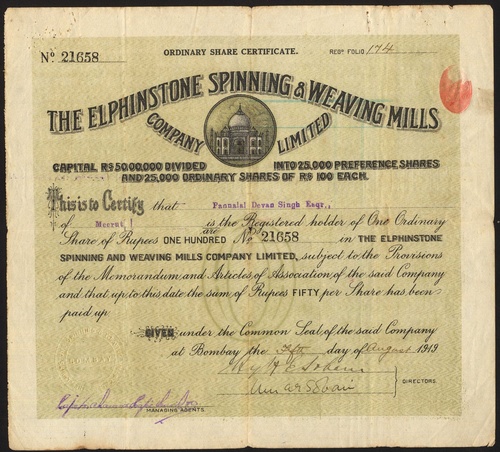 ORDINARY SHARE CERTIFICATE.
No. 21658
REGD FOLIO 174
THE ELPHINSTONE SPINNING & WEAVING MILLS
COMPANY LIMITED
CAPITAL RS 50,00,000 DIVIDED INTO 25,000 PREFERENCE SHARES
AND 25,000 ORDINARY SHARES OF RS 100 EACH.
This is to Certify that Pannalal Devao Singh Esqr.,
of Meerut is the Registered holder of One Ordinary
are Nos
Share of Rupees ONE HUNDRED No 21658 in THE ELPHINSTONE
SPINNING AND WEAVING MILLS COMPANY LIMITED, subject to the Provisions
of the Memorandum and Articles of Association of the said Company
and that up to this date the sum of Rupees FIFTY per Share has been
paid up.
GIVEN under the Common Seal of the said Company
at Bombay the Fifth day of August 1919
DIRECTORS.
MANAGING AGENTS.